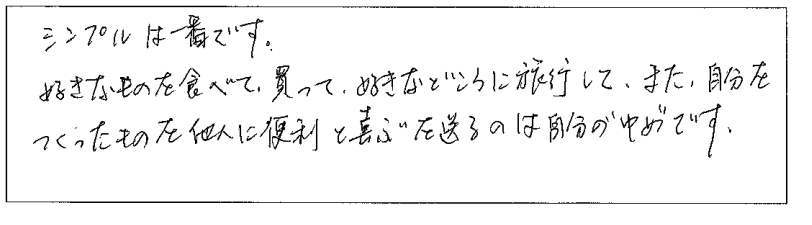 シンプルは一番です。
好きなものを食べて、買って、好きなところに旅行して、また、自分を
つくったものを他人に便利と喜ぶを送るのは自分のゆめです。